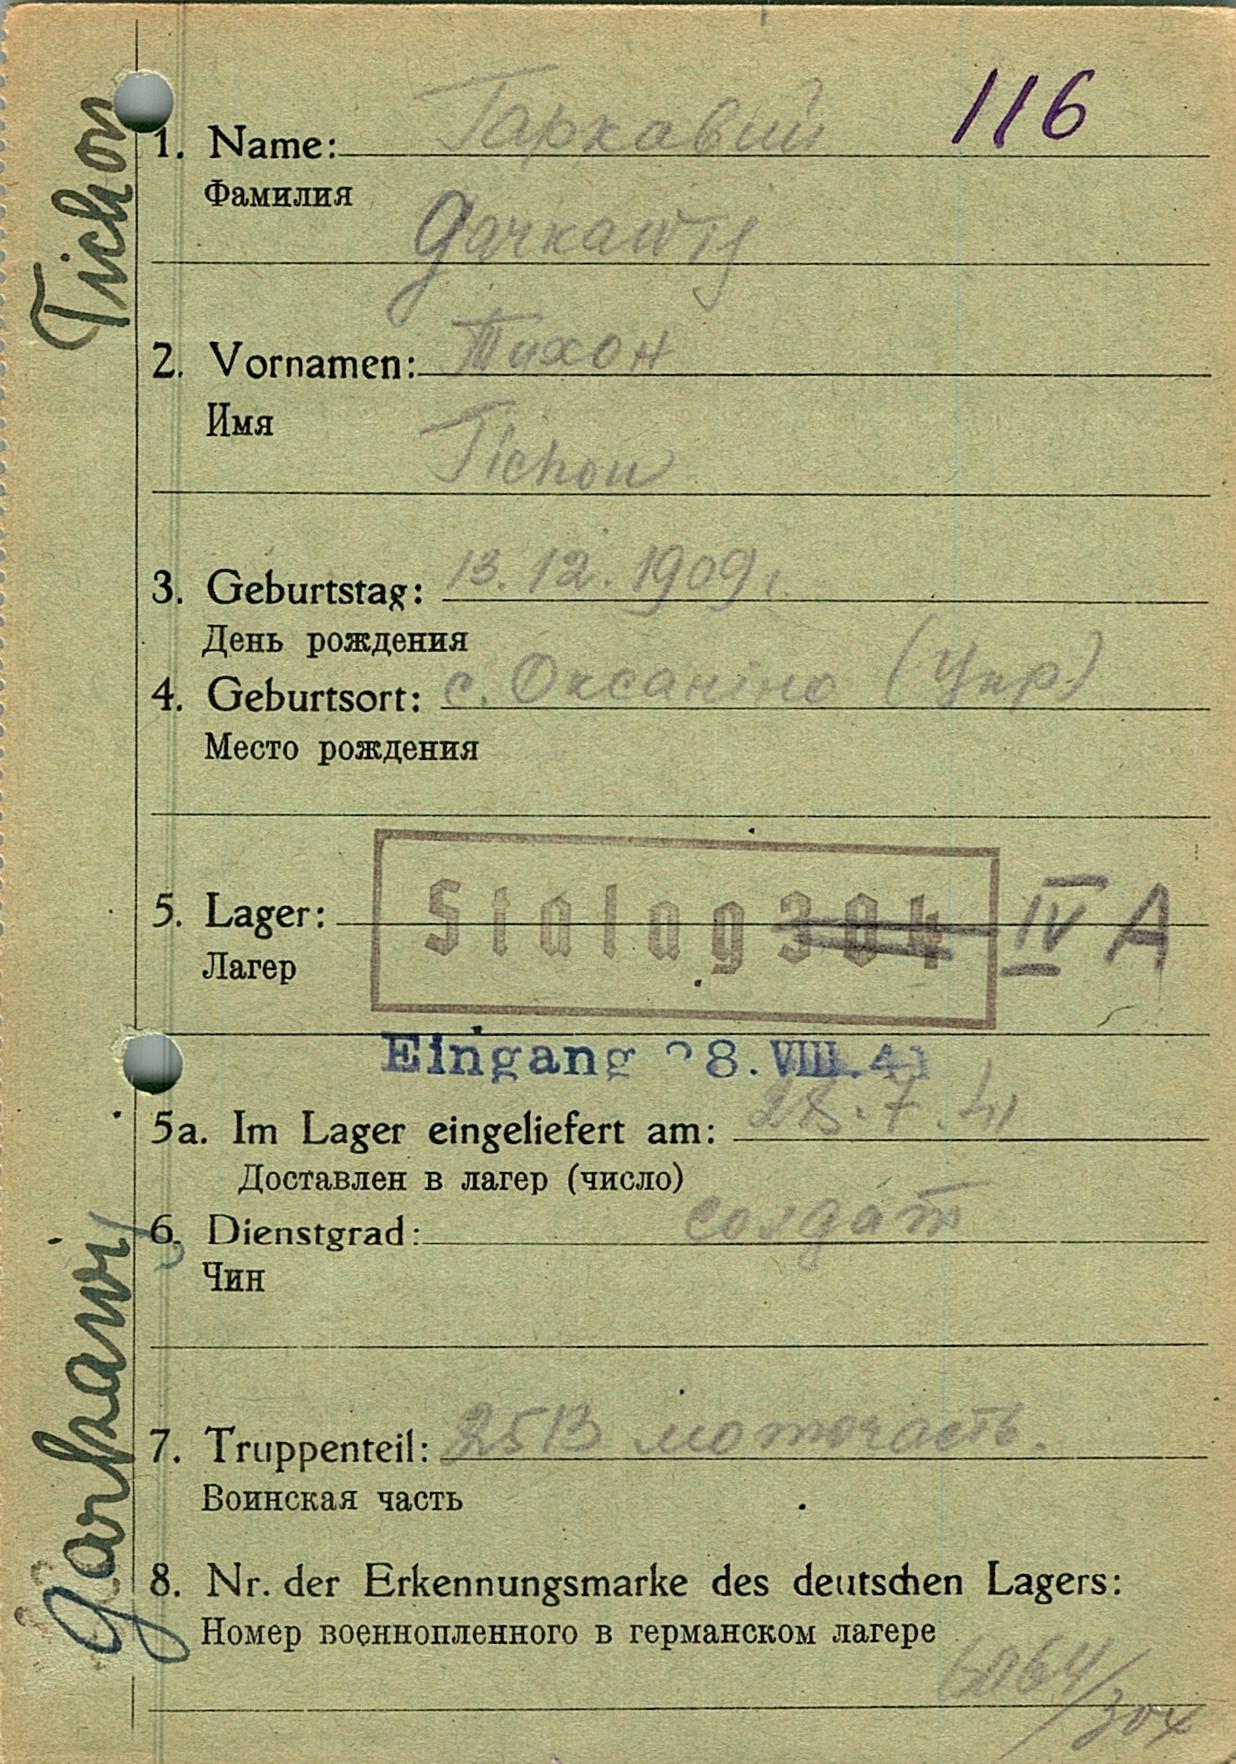 116
1. Name: Гаркавий
Фамилия
Garkawij
2. Vornamen: Тихон
Имя
Tichon
3. Geburtstag: 13.12.1909г.
День рождения
4. Geburtsort: с. Оксаніно (Укр)
Место рождения
5. Lager: Stalag 304 IV A
Лагер
Eingang 28.VIII.41
5a. Im Lager eingeliefert am: 28.7.41
Доставлен в лагер (число)
6. Dienstgrad: солдат
Чин
7. Truppenteil: моточасть.
Воинская часть
8. Nr. der Erkennungsmarke des deutschen Lagers:
Номер военнопленного в германском лагере
6064/304
Garkawij Tichon